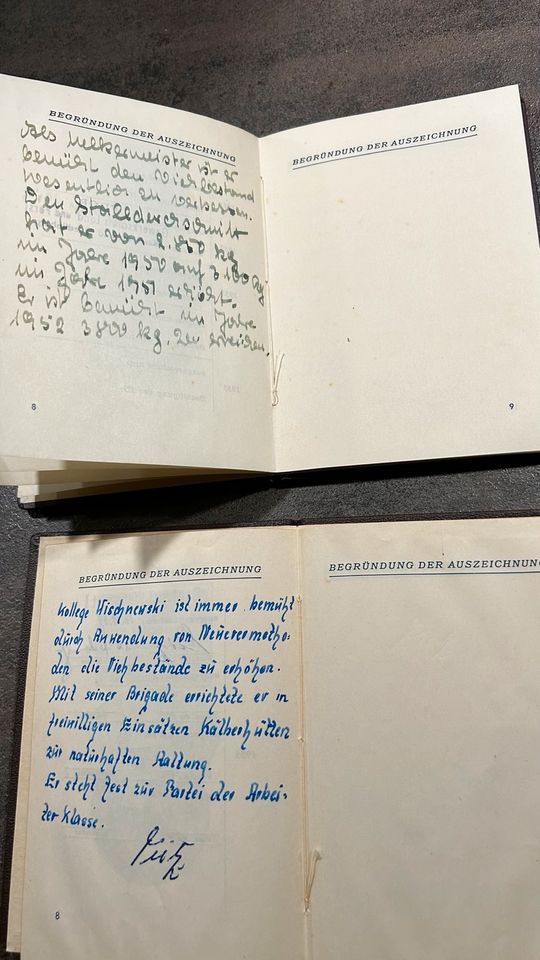 BEGRÜNDUNG DER AUSZEICHNUNG
Als Melkermeister ist er
bemüht den Viehbestand
wesentlich zu verbessern.
Den Stalldurchschnitt
hat er von 2.850 kg
im Jahre 1950 auf 3100 kg
im Jahre 1951 erhöht.
Er ist bemüht im Jahre
1952 3800 kg. zu erreichen.
8
BEGRÜNDUNG DER AUSZEICHNUNG
9
BEGRÜNDUNG DER AUSZEICHNUNG
Kollege Wischnewski ist immer bemüht
durch Anwendung von Neuerermetho-
den die Viehbestände zu erhöhen.
Mit seiner Brigade errichtete er in
freiwilligen Einsätzen Kälberhütten
zur naturhaften Haltung.
Er steht fest zur Partei der Arbei-
ter Klasse.
8
BEGRÜNDUNG DER AUSZEICHNUNG